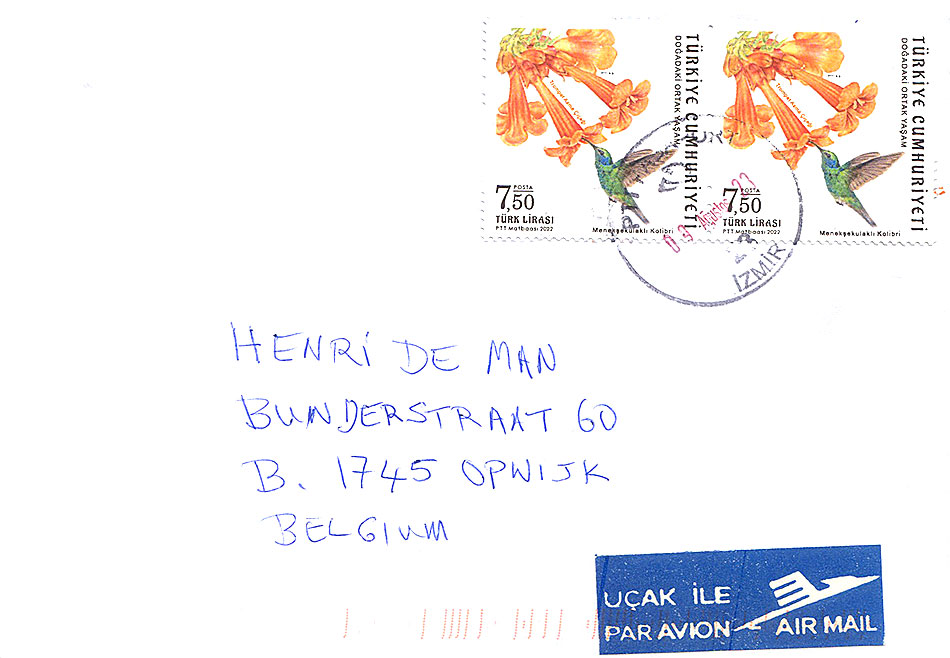 TÜRKİYE CUMHURİYETİ
DOĞADAKİ ORTAK YAŞAM
POSTA
7,50
TÜRK LİRASI
PTT Matbaası 2022
Menekşekulaklı Kolibri
TÜRKİYE CUMHURİYETİ
DOĞADAKİ ORTAK YAŞAM
POSTA
7,50
TÜRK LİRASI
PTT Matbaası 2022
Menekşekulaklı Kolibri
İZMİR
HENRİ DE MAN
BUNDERSTRAAT 60
B. 1745 OPWIJK
BELGIUM
UÇAK İLE
PAR AVION AIR MAIL